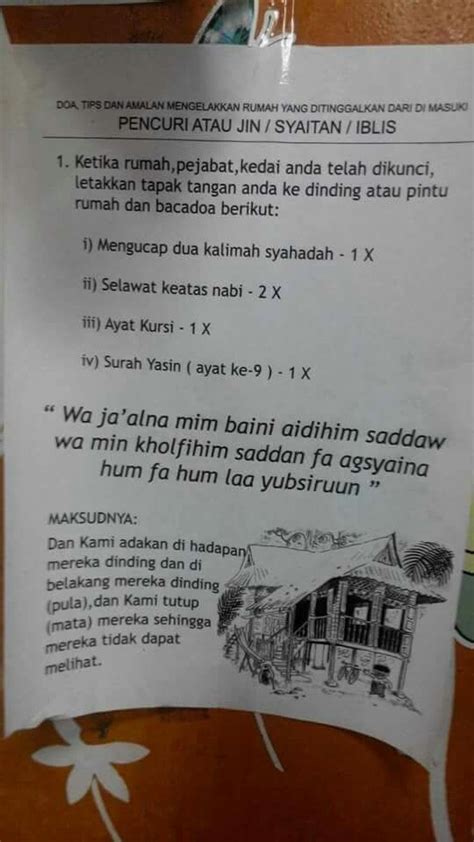 DOA, TIPS DAN AMALAN MENGELAKKAN RUMAH YANG DITINGGALKAN DARI DI MASUKI
PENCURI ATAU JIN / SYAITAN / IBLIS
1. Ketika rumah,pejabat,kedai anda telah dikunci,
letakkan tapak tangan anda ke dinding atau pintu
rumah dan bacadoa berikut:
i) Mengucap dua kalimah syahadah - 1 X
ii) Selawat keatas nabi - 2 X
iii) Ayat Kursi - 1 X
iv) Surah Yasin ( ayat ke-9 ) - 1 X
“ Wa ja’alna mim baini aidihim saddaw
wa min kholfihim saddan fa agsyaina
hum fa hum laa yubsiruun ”
MAKSUDNYA:
Dan Kami adakan di hadapan
mereka dinding dan di
belakang mereka dinding
(pula),dan Kami tutup
(mata) mereka sehingga
mereka tidak dapat
melihat.